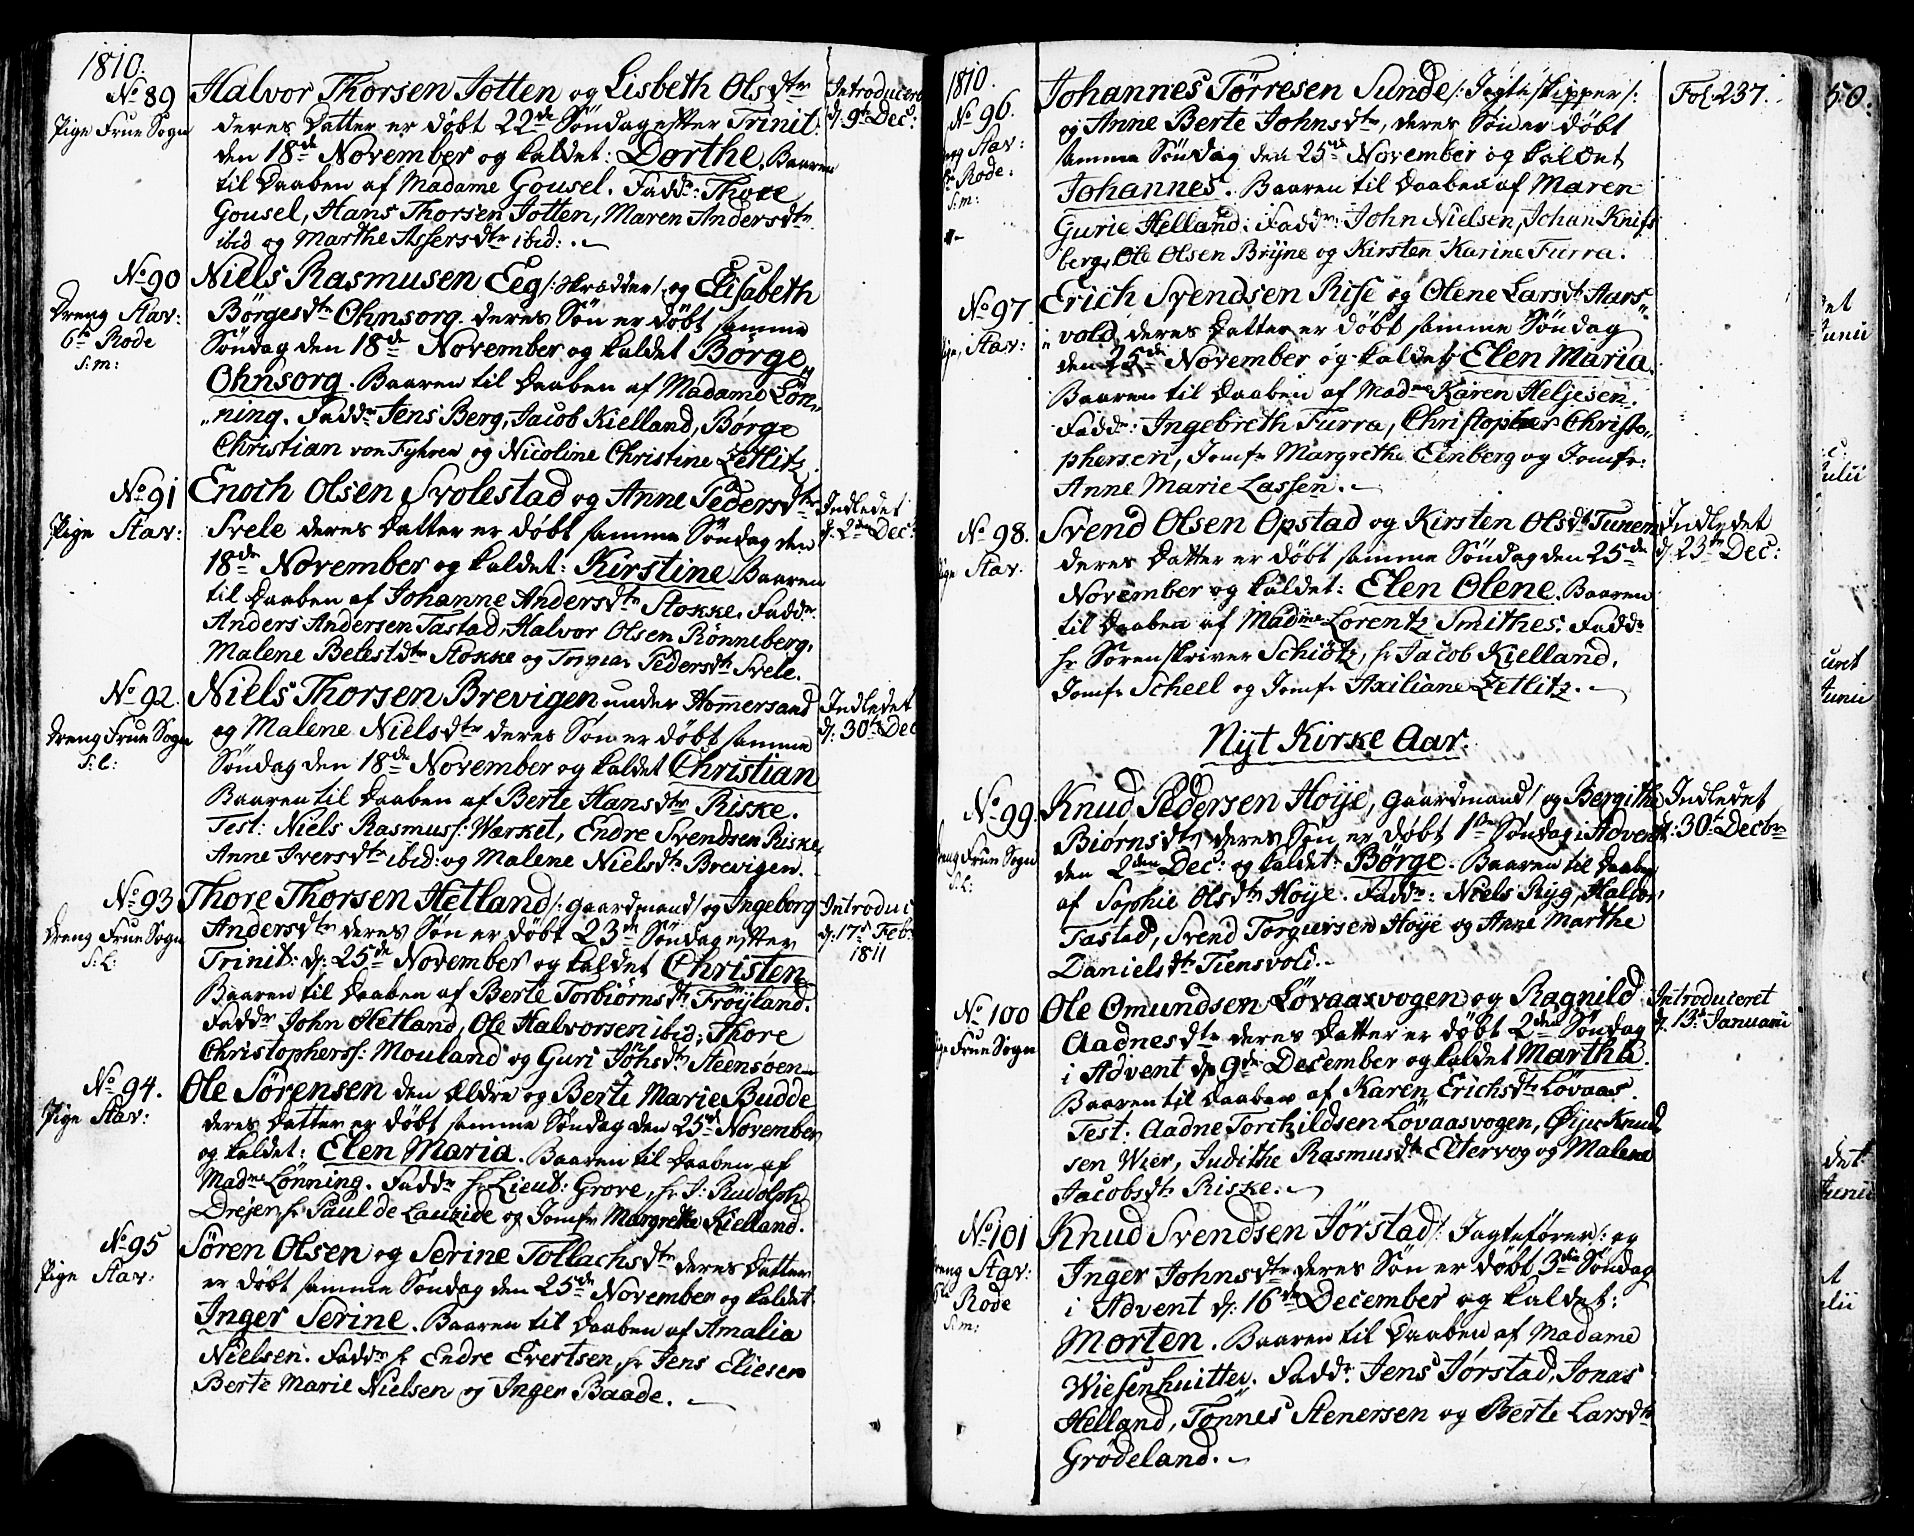 1810.
No 89 Halvor Thorsen Jotten og Lisbeth Olsdtr Introduceret
Pige Frue Sogn deres Datter er døbt 22de Søndag efter Trinit: d: 9de Dec:
den 18de November og kaldet: Dorthe. Baaren
til Daaben af Madame Gousel. Fadd: Thore
Gousel, Hans Thorsen Jotten, Maren Andersdtr
ibid og Marthe Assersdtr ibid:
No 90 Niels Rasmusen Eeg /: Skrædder / og Elisabeth
Dreng Stav: Børgesdtr Ohnsorg deres Søn er døbt samme
6te Rode Søndag den 18de November og kaldet Børge
S: m: Ohnsorg. Baaren til Daaben af Madame Løn„
„ning. Fadd: Jens Berg, Jacob Kielland, Børge
Christian von Fyhren og Nicoline Christine Zetlitz.
No 91 Enoch Olsen Svolestad og Anne Pedersdtr Indledet
Pige Stav: Svele deres Datter er døbt samme Søndag den d: 2den Dec:
18de November og kaldet: Kirstine Baaren
til Daaben af Johanne Andersdtr Stokke. Fadd:
Anders Andersen Tastad, Halvor Olsen Rønneberg,
Malene Belestdtr Stokke og Pedersdtr Svele.
No 92. Niels Thorsen Brevigen under Hommersand Indledet
Dreng Frue Sogn og Malene Nielsdtr deres Søn er døbt samme d: 30te Dec
S: l: Søndag den 18de November og kaldet Christian
Baaren til Daaben af Berte Hansdtr Riske.
Test: Niels Rasmus: Wærket, Endre Svendsen Riske,
Anne Iversdtr ibid: og Malene Nielsdtr Brevigen.
No 93 Thore Thorsen Hetland /: gaardmand / og Ingeborg Introduc
Dreng Frue Sogn Andersdtr deres Søn er døbt 23de Søndag efter d: 17de Feb:
S: l: Trinit: d: 25de November og kaldet Christen 1811
Baaren til Daaben af Berte Torbiørnsdtr Frøyland.
Fadd: John Hetland, Ole Halvorsen ibid, Thore
Christophers: Mouland og Guri Johsdtr Steensøen
No 94. Ole Sørensen den Ældre og Berte Marie Budde
Pige Stav: deres Datter er døbt samme Søndag den 25de November
og kaldet: Elen Maria. Baaren til Daaben af
Madme Lønning. Fadd: hr Lieut: Grove, hr J: Rudolph
Drejer, hr Paul de Lauzide og Jomfr Margrethe Kielland.
No 95 Søren Olsen og Serine Tollachsdtr deres Datter
Pige Stav: er døbt samme Søndag den 25de November og kaldet
Inger Serine. Baaren til Daaben af Amalia
Nielsen. Fadd: hr Endre Evertsen, hr Jens Eliesen
Berte Marie Nielsen og Inger Baade.
1810. Johannes Tørresen Sunde /: Jagtskipper /: Fol. 237.
No 96. og Anne Berte Johnsdtr, deres Søn er døbt
Stav: samme Søndag den 25de November og kaldet
Rode: Johannes. Baaren til Daaben af Maren
S: m: Gurie Helland. Fadd: John Nielsen, Johan Knifs
berg, Ole Olsen Bryne og Kirsten Karine Furra.
No 97. Erich Svendsen Rise og Olene Larsdtr Aars„
Stav: „vold deres Datter er døbt samme Søndag
den 25de November og kaldet Elen Maria.
Baaren til Daaben af Madme Karen Heljesen.
Fadd: Ingebreth Furra, Christopher Christo„
phersen, Jomfr Margrethe Eenberg og Jomfr:
Anne Marie Lassen.
No 98. Svend Olsen Opstad og Kirsten Olsdtr Tunem Indledet
Stav. deres Datter er døbt samme Søndag den 25de d: 23de Dec:
November og kaldet: Elen Olene. Baaren
til Daaben af Madme Lorentz Smithes. Fadd:
hr Sorenskriver Schiøtz, hr Jacob Kielland,
Jomfr Scheel og Jomfr Axiliane Zetlitz.
Nyt Kirke Aar.
No 99. Knud Pedersen Høye, gaardmand / og Bergithe Indledet
Dreng Frue Sogn Biørnsdtr deres Søn er døbt 1ste Søndag i Advent d: 30te Decbr
S: l: den 2den Dec: og kaldet: Børge. Baaren til Daaben
af Sophie Olsdtr Høye. Fadd: Niels Ryg, Halvor
Tastad, Svend Torgiersen Høye og Anne Marthe
Danielsdtr Tiensvold.
No 100 Ole Omundsen Løvaasvogen og Ragnild Introduceret
Pige Frue Sogn Aadnesdtr deres Datter er døbt 2den Søndag d. 13de Januarii
i Advent d: 9de December og kaldet Martha.
Baaren til Daaben af Karen Erichsdtr Løvaas.
Test: Aadne Torchildsen Løvaasvogen, Knud
sen Wier, Judithe Rasmusdtr Eltervog og Malene
Jacobsdtr Riske.
No 101 Knud Svendsen Jørstad /: Jagtefører /: og
Dreng Stav: Inger Johnsdtr deres Søn er døbt 3die Søndag
Rode i Advent d: 16de December og kaldet:
S: m: Morten. Baaren til Daaben af Madame
Wiesenhuitter. Fadd: Jens Jørstad, Jonas
Helland, Tønnes Stenersen og Berte Larsdtr
Grødeland.
50.